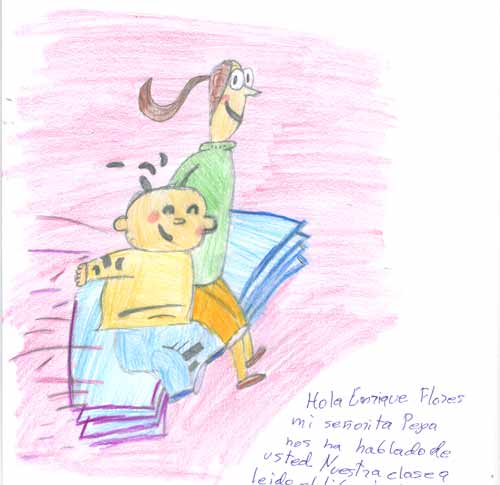 Hola Enrique Flores
mi señorita Pepa
nos ha hablado de
usted Nuestra clase a
leido el